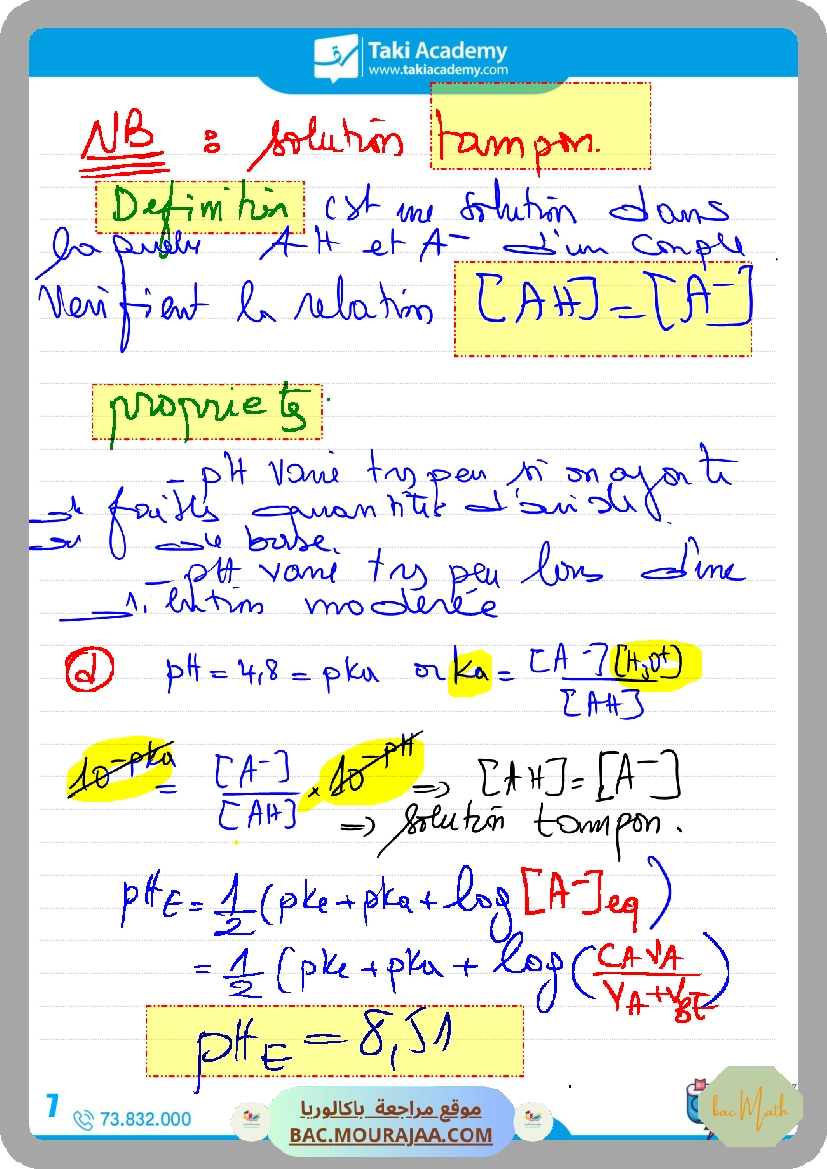 Taki Academy
www.takiacademy.com
NB : solution tampon.
Definition est une solution dans
laquelle AH et A⁻ d'un couple
verifient la relation [AH] = [A⁻]
proprietes
- pH varie trs peu si on ajoute
faibles quantités d'acide
ou de base.
- pH varie trs peu lors d'une
modérée
d pH = 4,8 = pka or ka = [A⁻][H₃O⁺] / [AH]
10^-pka = [A⁻] / [AH] × 10^-pH => [AH] = [A⁻]
=> solution tampon.
pH_E = 1/2 (pke + pka + log [A⁻]eq)
= 1/2 (pke + pka + log (CAVA / VA+VBE))
pH_E = 8,51
7
73.832.000
موقع مراجعة باكالوريا
BAC.MOURAJAA.COM
bac Math